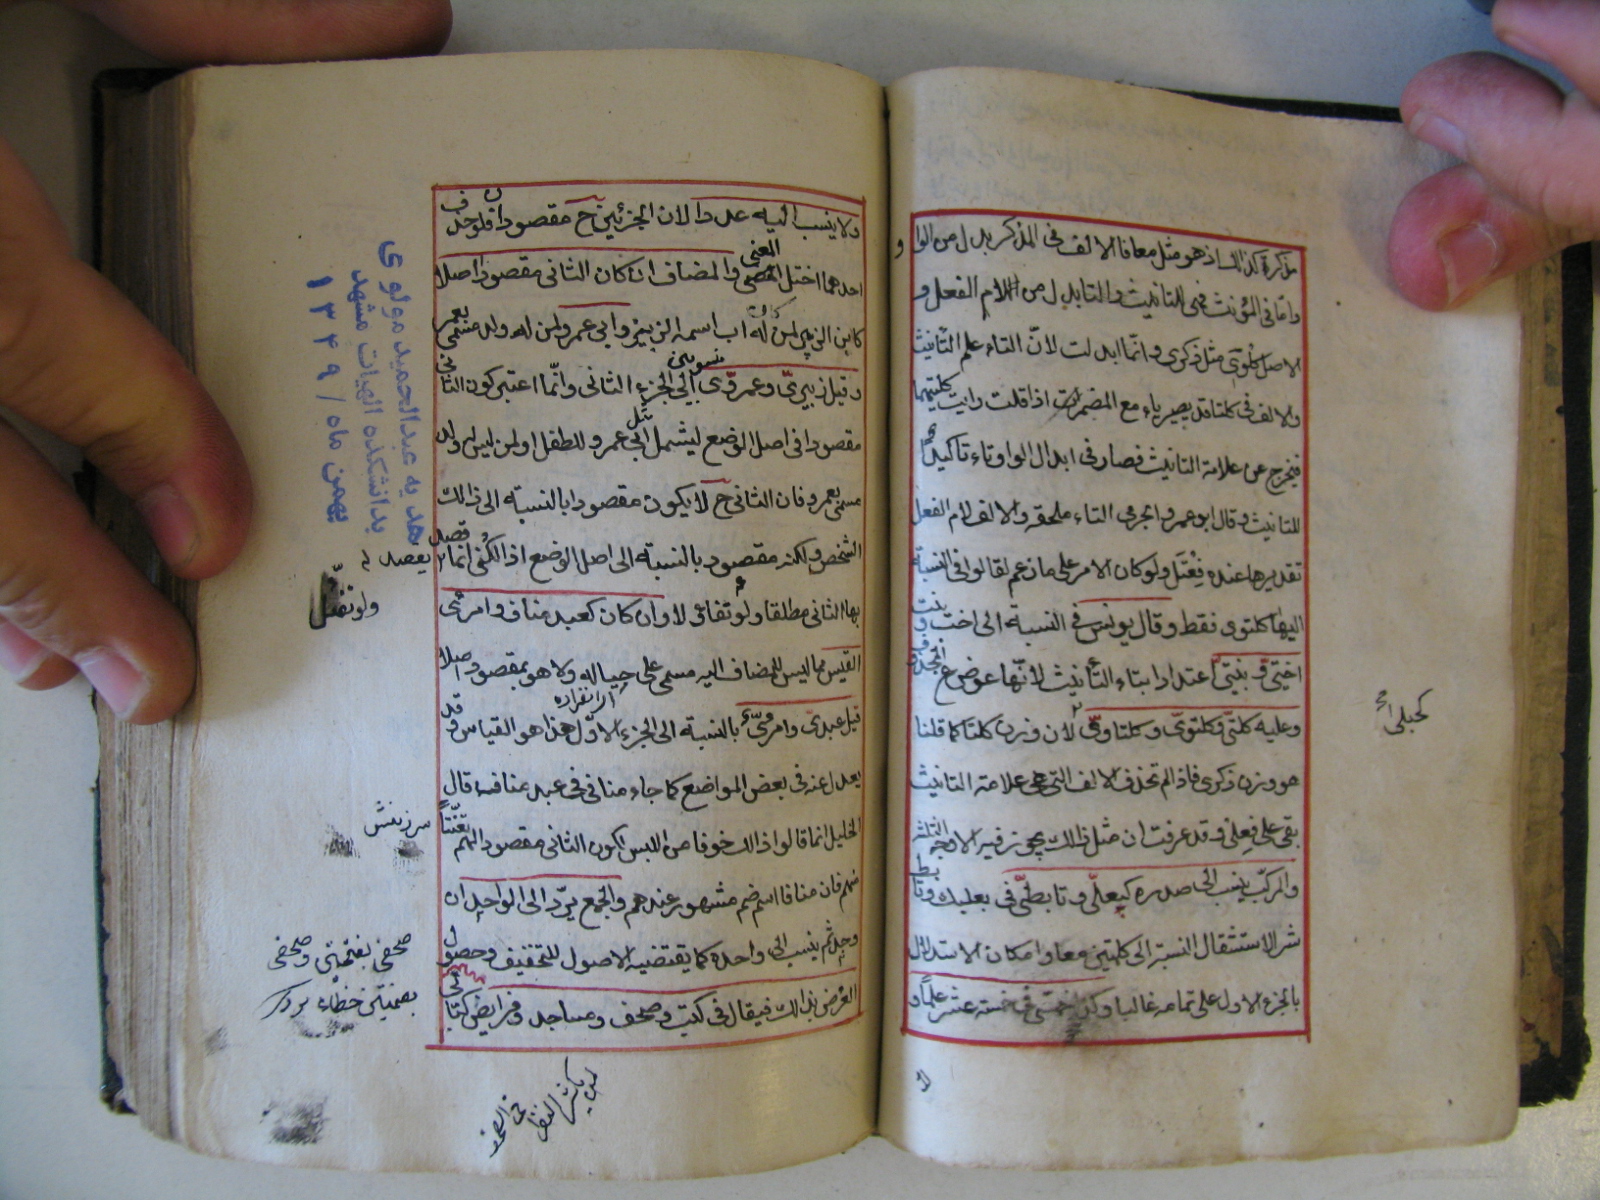 مذكرة كذلك اذ هو مثل معافا الالف فى المذكر بدل من الواو
واما فى المؤنث فهى للتانيث والتا بدل من اللام الفعل و
الاصل كلوى مثل ذكرى وانما ابدلت لان التاء علم التانيث
والالف فى كلتا قد يصير ياء مع المضمرات اذا قلت رايت كلتيهما
فيخرج عن علامة التانيث فصار فى ابدال الواو تاء تاكيدا
للتانيث وقال ابو عمرو الجرمى التاء ملحقه والالف لام الفعل
تقديرها عنده فعتل ولو كان الامر على ما زعم لقالوا فى النسبة
اليها كلتوى فقط وقال يونس فى النسبة الى اخت و بنت
اختى و بنتى اعتدادا بتاء التأنيث لانها عوض ع
وعليه كلتى وكلتوى وكلتاوى لان وزن كلتا كما قلنا
هو وزن ذكرى فاذا لم تحذف الالف التى هى علامة التانيث
بقى على فعلى وقد عرفت ان مثل ذلك يجوز فيه الاوجه الثلثة
والمركب ينسب الى صدره كبعلى وتابطى فى بعلبك وتابط
شرا لاستثقال النسبة الى كلمتين معا وامكان الاستدلال
بالجزء الاول على تمامه غالبا وكذا خمسى فى خمسة عشر علما و
كحبلى
ولا ينسب اليه عددا لان الجزئين ح مقصودان فلو حذف
احدهما اختل المعنى والمضاف ان كان الثانى مقصودا اصلا
كابن الزبير لمن له اب اسمه الزبير وابى عمرو لمن له ولد مسمى بعمرو
وقيل زبيرى وعمروى منسوبين الى الجزء الثانى وانما اعتبر كون الثانى
مقصودا فى اصل الوضع ليشمل مثل ابى عمرو للطفل او لمن ليس له ولد
مسمى بعمرو فان الثانى ح لا يكون مقصودا بالنسبة الى ذلك
الشخص ولكنه مقصود بالنسبة الى اصل الوضع اذ الكنى انما قصد
بها الثانى مطلقا ولو تفاءلا وان كان كعبد مناف وامرئ
القيس مما ليس للمضاف اليه مسمى على حياله ولا هو بمقصود اصلا
اى انفراده
قيل عبدى وامرئى بالنسبة الى الجزء الاول هذا هو القياس وقد
يعدل عنه فى بعض المواضع كما جاء منافى فى عبد مناف قال
الخليل انما قالوا ذلك خوفا من اللبس لكون الثانى مقصودا لهم
منهم فان منافا اسم صنم مشهور عندهم والجمع يرد الى الواحد ان
وجد ثم ينسب الى واحده كما يقتضيه الاصول للتخفيف وحصول
الغرض بذلك فيقال فى كتب وصحف ومساجد وفرايض كتابى
هديه عبدالحميد مولوى
بدانشكده الهيات مشهد
بهمن ماه / ١٣٤٩
يقصد
سرزنش
صحفى بفتحتين وصحفى
بضمتين خطاء